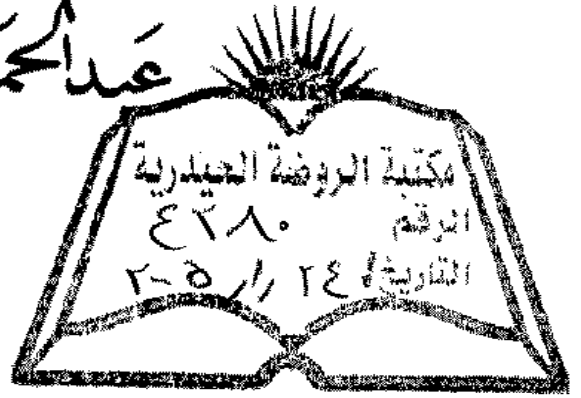 عبدالحم
مكتبة الروضة الحيدرية
الرقم ٤٣٨٠
التاريخ ٢٤